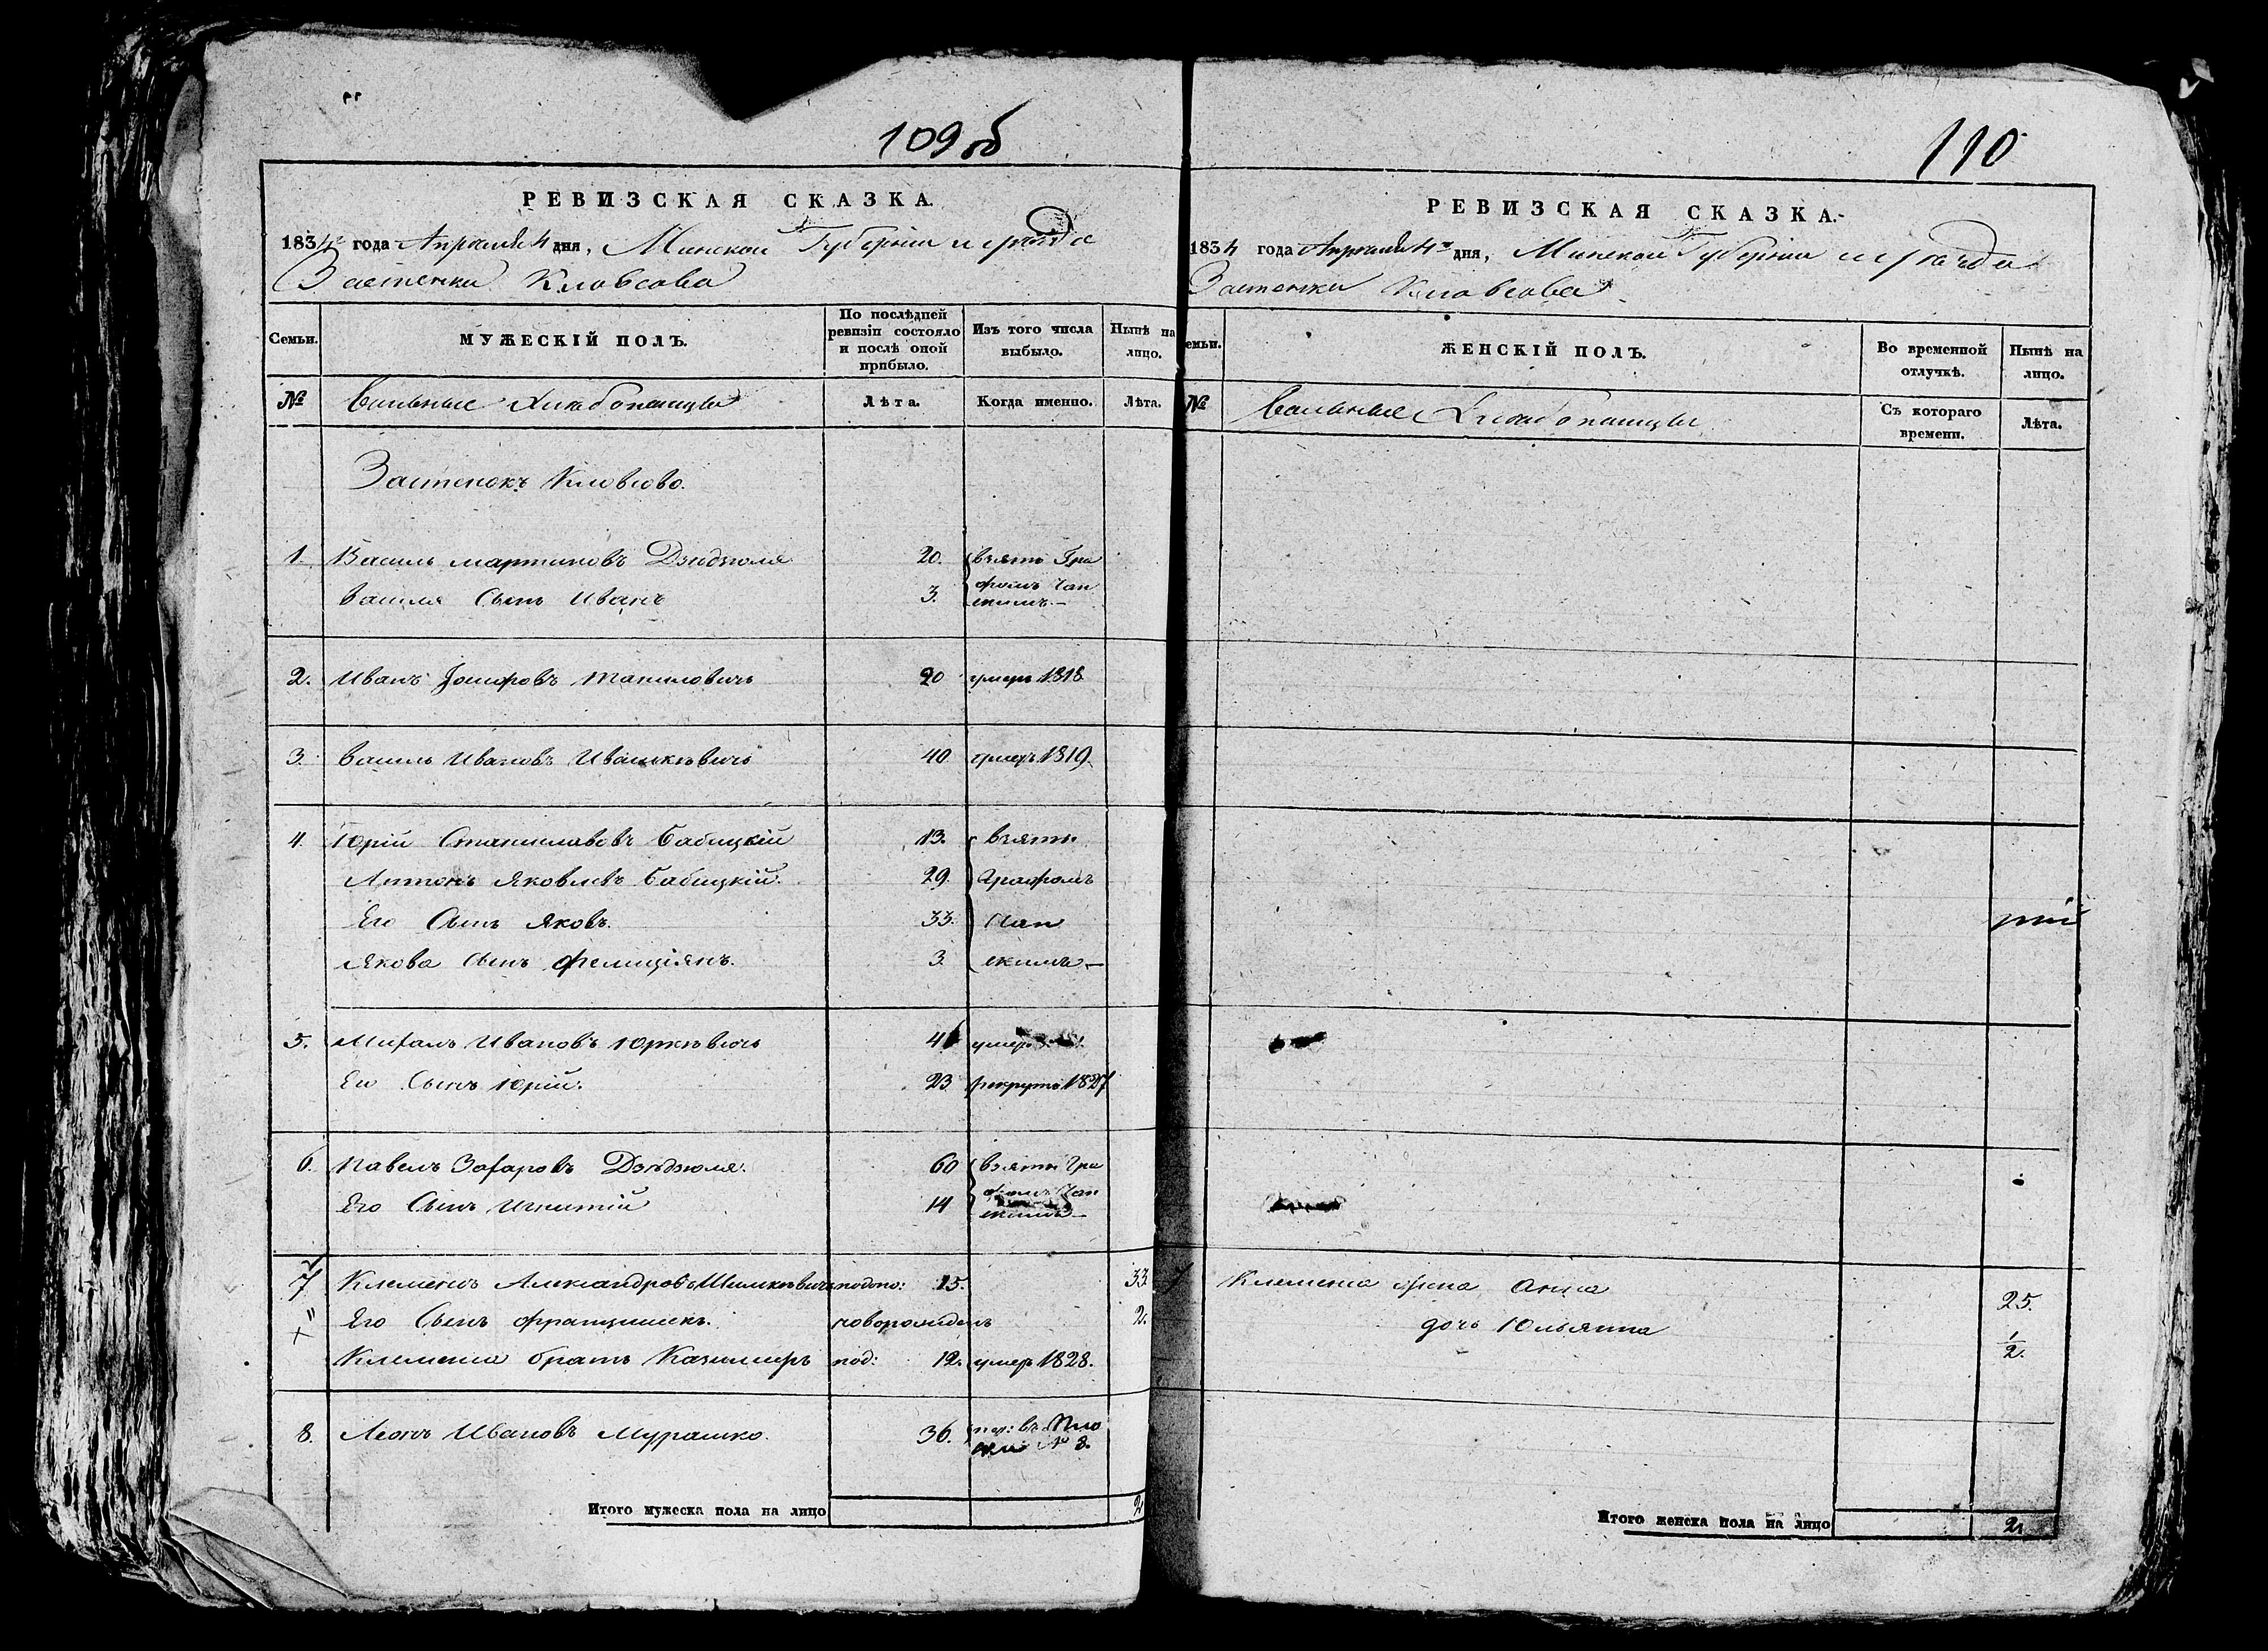 109об
РЕВИЗСКАЯ СКАЗКА.
1834 года Апреля 4 дня, Минской Губерніи и уезда
Застенка Кловсова
Семьи.
МУЖЕСКІЙ ПОЛЪ.
По послѣдней ревизіи состояло и послѣ оной прибыло.
Изъ того числа выбыло.
Нынѣ на лицо.
№
Вольные Хлебопашцы
Лѣта.
Когда именно.
Лѣта.
Застенокъ Кловсово.
1. Василь Мартиновъ Дзюдзюля 20. взяты Гра
Василя Сынъ Иванъ 3. фомъ Чап
скимъ.—
2. Иванъ 20 умеръ 1818
3. Василь Ивановъ Ивашкевичъ 40 умеръ 1819.
4. Юрій Станиславовъ Бабицкій 13. взяты
Антонъ Яковлевъ Бабицкій. 29. Графомъ
Его Сынъ Яковъ. 33. Чап
Якова Сынъ Фелиціянъ. 3. скимъ—
5. Михалъ Ивановъ Юркевичъ умеръ
Его Сынъ Юрій. 23 рекрутъ 1827
6. Павелъ Захаровъ Дзюдзюля. 60 взяты Гра
Его Сынъ Игнатій 14 фомъ Чап
скимъ—
7 Клеменсъ Александровъ Шимкевичъ подпо: 15. 33
Его Сынъ Францишекъ. новорожденъ 2.
Клеменса братъ Казимеръ под: 12. умеръ 1828.
8. Леонъ Ивановъ Мурашко. 36. пер: въ
№ 8.
Итого мужеска пола на лицо 2
110
РЕВИЗСКАЯ СКАЗКА.
1834 года Апреля 4го дня, Минской Губерніи и уезда
Застенка Кловсова
Семьи.
ЖЕНСКІЙ ПОЛЪ.
Во временной отлучкѣ.
Нынѣ на лицо.
№
Вольные Хлебопашцы
Съ котораго времени.
Лѣта.
Клеменса жена Анна 25.
дочь Юльянна 1/2.
Итого женска пола на лицо 2